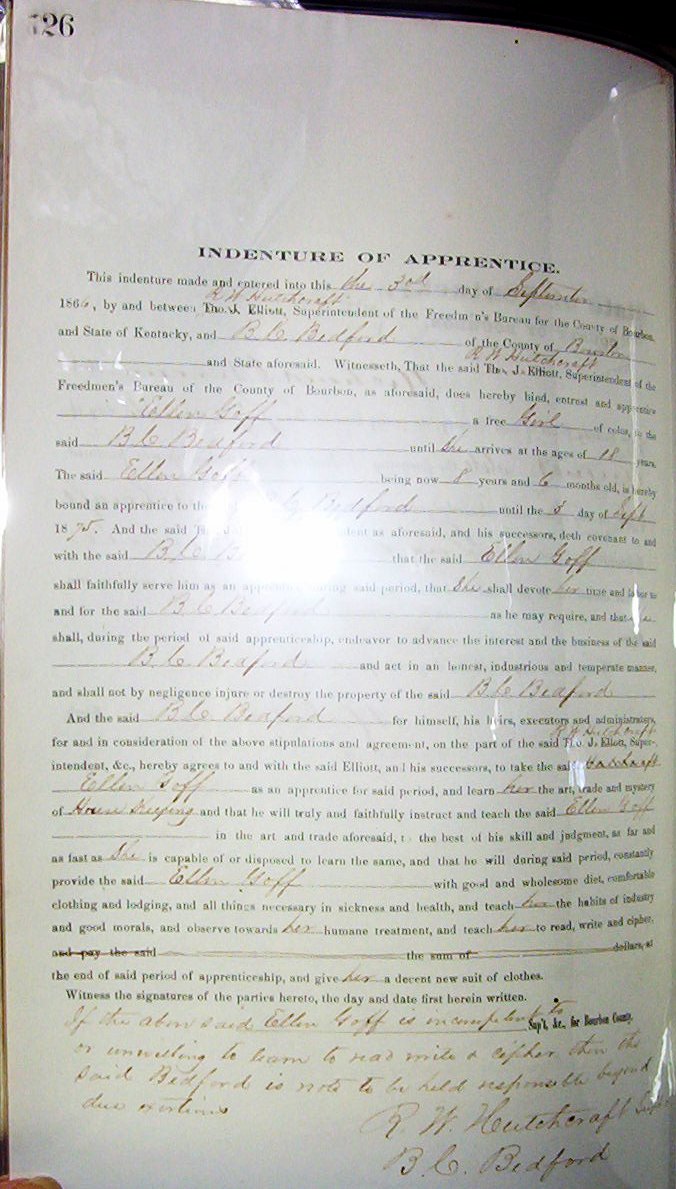 526
INDENTURE OF APPRENTICE.
This indenture made and entered into this the 3rd day of September
R W Hutchcraft
1866, by and between Tho. J. Elliott, Superintendent of the Freedm n's Bureau for the County of Bourbon,
and State of Kentucky, and B C Bedford of the County of Bourbon
R W Hutchcraft
and State aforesaid. Witnesseth, That the said Tho. J. Elliott, Superintendent of the
Freedmen's Bureau of the County of Bourbon, as aforesaid, does hereby bind, entrust and apprentice
Ellen Goff a free Girl of color, to the
said B C Bedford until She arrives at the ages of 18 years.
The said Ellen Goff being now 8 years and 6 months old, is hereby
bound an apprentice to the B C Bedford until the 3 day of Sept
1875. And the said dent as aforesaid, and his successors, doth covenant to and
with the said B. C. B that the said Ellen Goff
shall faithfully serve him as an apprentice during said period, that She shall devote her time and labor to
and for the said B C Bedford as he may require, and that
shall, during the period of said apprenticeship, endeavor to advance the interest and the business of the said
B. C. Bedford and act in an honest, industrious and temperate manner,
and shall not by negligence injure or destroy the property of the said B C Bedford
And the said B. C. Bedford for himself, his heirs, executors and administrators,
for and in consideration of the above stipulations and agreement, on the part of the said Tho. J. Elliott, Super-
R W Hutchcraft
intendent, &c., hereby agrees to and with the said Elliott, and his successors, to take the said Hutchcraft
Ellen Goff as an apprentice for said period, and learn her the art, trade and mystery
of House Keeping and that he will truly and faithfully instruct and teach the said Ellen Goff
in the art and trade aforesaid, to the best of his skill and judgment, as far and
as fast as She is capable of or disposed to learn the same, and that he will during said period, constantly
provide the said Ellen Goff with good and wholesome diet, comfortable
clothing and lodging, and all things necessary in sickness and health, and teach her the habits of industry
and good morals, and observe towards her humane treatment, and teach her to read, write and cipher,
and pay the said the sum of dollars, at
the end of said period of apprenticeship, and give her a decent new suit of clothes.
Witness the signatures of the parties hereto, the day and date first herein written.
If the above said Ellen Goff is incompetent to
Sup't, &c., for Bourbon County.
or unwilling to learn to read write & cipher then the
said Bedford is not to be held responsible beyond
due exertions
R. W. Hutchcraft Supt
B. C. Bedford